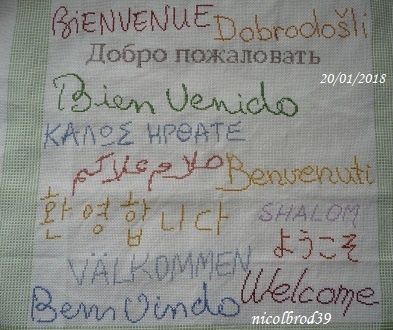 BIENVENUE
Dobrodošli
Добро пожаловать
20/01/2018
Bien Venido
ΚΑΛΩΣ ΗΡΘΑΤΕ
صلام علاكم
Benvenuti
환영합니다
SHALOM
ようこそ
VÄLKOMMEN
Welcome
Bem Vindo
nicolbrod39